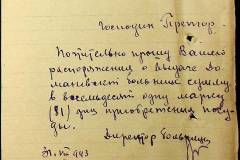 Господин Претор.
Почтительно прошу Вашего
распоряжения о выдаче До-
маневской больнице сумму
в восемьдесят одну марку
(81) для приобретения посу-
ды.
Директор больницы
943